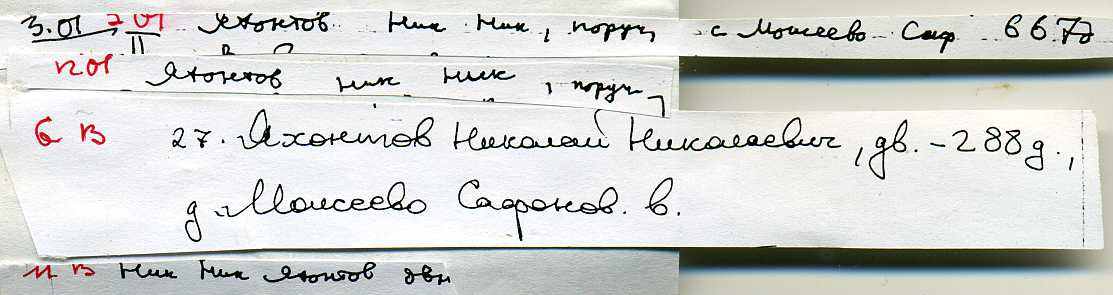 3.01 7 01 Яхонтов Ник Ник, поруч, с Моисеево Саф в 6.70
II
12 01 Яхонтов ник ник, поруч,
6 В 27. Яхонтов Николай Николаевич, дв. - 288 д.,
д. Моисеево Сафонов. в.
11 В Ник Ник Яхонтов двн